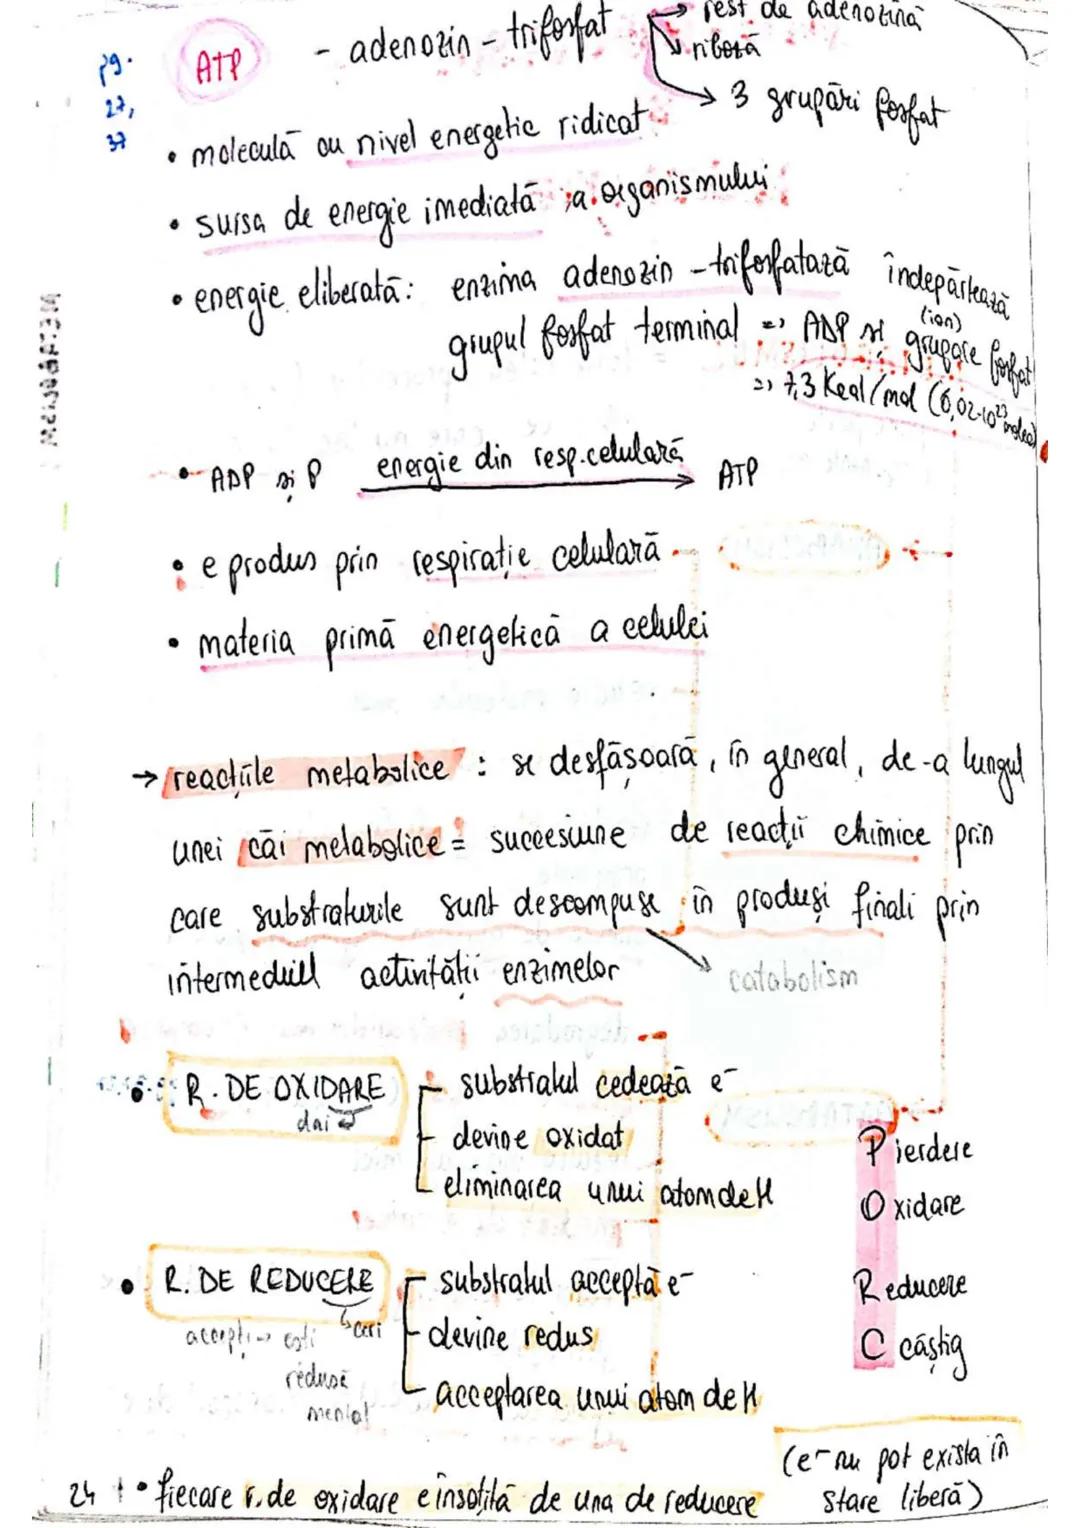 pg. 27, 37
ATP - adenozin - trifosfat → rest de adenozină
→ riboză
→ 3 grupări fosfat
• moleculă cu nivel energetic ridicat
• sursa de energie imediată a organismului
• energie eliberată: enzima adenozin - trifosfatază îndepărtează
grupul fosfat terminal => ADP și grupare (ion) fosfat
=> 7,3 Kcal/mol (6,02·10²³ molec)
• ADP și P energie din resp. celulară → ATP
• e produs prin respirație celulară
• materia primă energetică a celulei
→ reacțiile metabolice : se desfășoară, în general, de-a lungul
unei căi metabolice = succesiune de reacții chimice prin
care substraturile sunt descompuse în produși finali prin
intermediul activității enzimelor → catabolism
• R. DE OXIDARE
dai
substratul cedează e⁻
devine oxidat
eliminarea unui atom de H
Pierdere
Oxidare
• R. DE REDUCERE
ceri
accepți → ești
redusă
mental
substratul acceptă e⁻
devine redus
acceptarea unui atom de H
Reducere
C câștig
(e⁻ nu pot exista în
stare liberă)
24 • fiecare r. de oxidare e însoțită de una de reducere